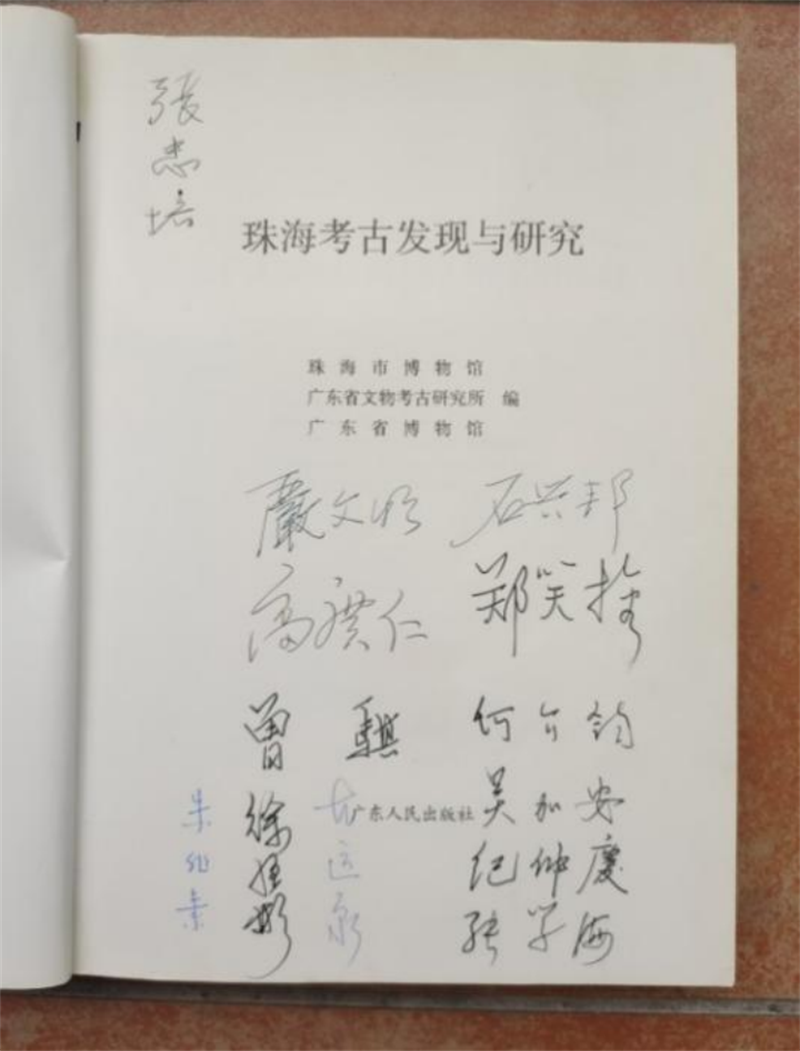 张忠培
珠海考古发现与研究
珠海市博物馆
广东省文物考古研究所 编
广东省博物馆
嚴文明 石兴邦
高广仁 郑笑梅
曾骐 何介钧
吴加安
广东人民出版社
徐恒彬
纪仲慶
张学海
朱非素
古运泉